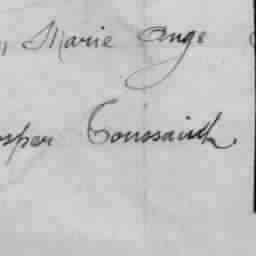 Marie Ange
osper Toussaint